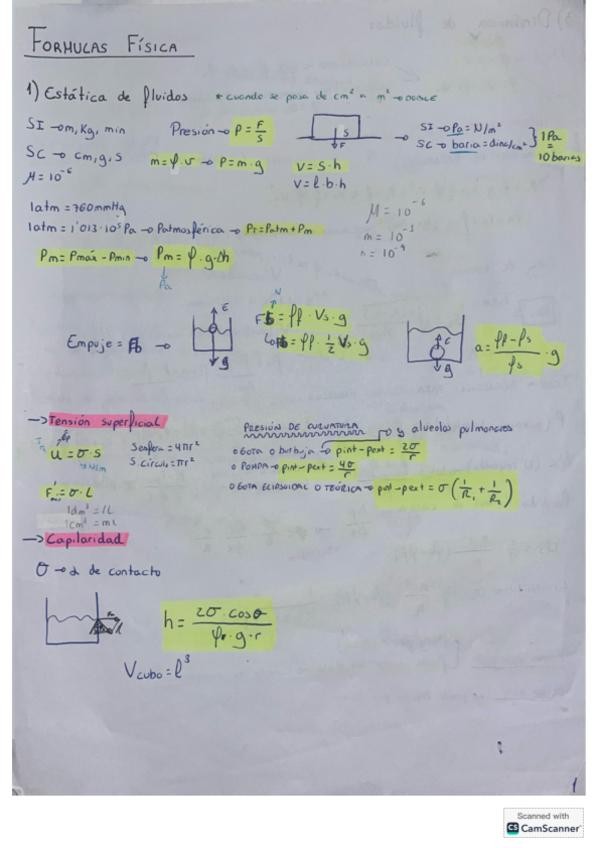 FORMULAS FÍSICA
1) Estática de fluidos * cuando se pasa de cm² a m² → DOBLE
SI → m, Kg, min
Presión → P = F/S
S
F
SI → Pa = N/m²
SC → baria = dina/cm²
1Pa = 10 barias
SC → cm, g, s
m = ρ · v → P = m · g
V = S · h
V = l · b · h
μ = 10⁻⁶
1atm = 760mmHg
1atm = 1'013 · 10⁵ Pa → Patmosférica → PT = Patm + Pm
μ = 10⁻⁶
m = 10⁻³
n = 10⁻⁹
Pm = Pmáx - Pmin → Pm = ρ · g · Δh
Pa
Empuje = Fb →
E
g
N
Fb = ρf · Vs · g
Fb = ρf · 1/2 Vs · g
E
g
a = (ρf - ρs)/ρs · g
→ Tensión superficial
U = σ · S
N/m
Sesfera = 4πr²
S círculo = πr²
PRESIÓN DE CURVATURA → y alveolos pulmonares
○ GOTA O burbuja → pint - pext = 2σ/r
○ POMPA → pint - pext = 4σ/r
○ GOTA ELIPSOIDAL O TEÓRICA → pint - pext = σ (1/R₁ + 1/R₂)
F = σ · L
1dm³ = 1L
1cm³ = mL
→ Capilaridad
θ → α de contacto
h = (2σ · cosθ)/(ρf · g · r)
Vcubo = l³
1
Scanned with
CS CamScanner